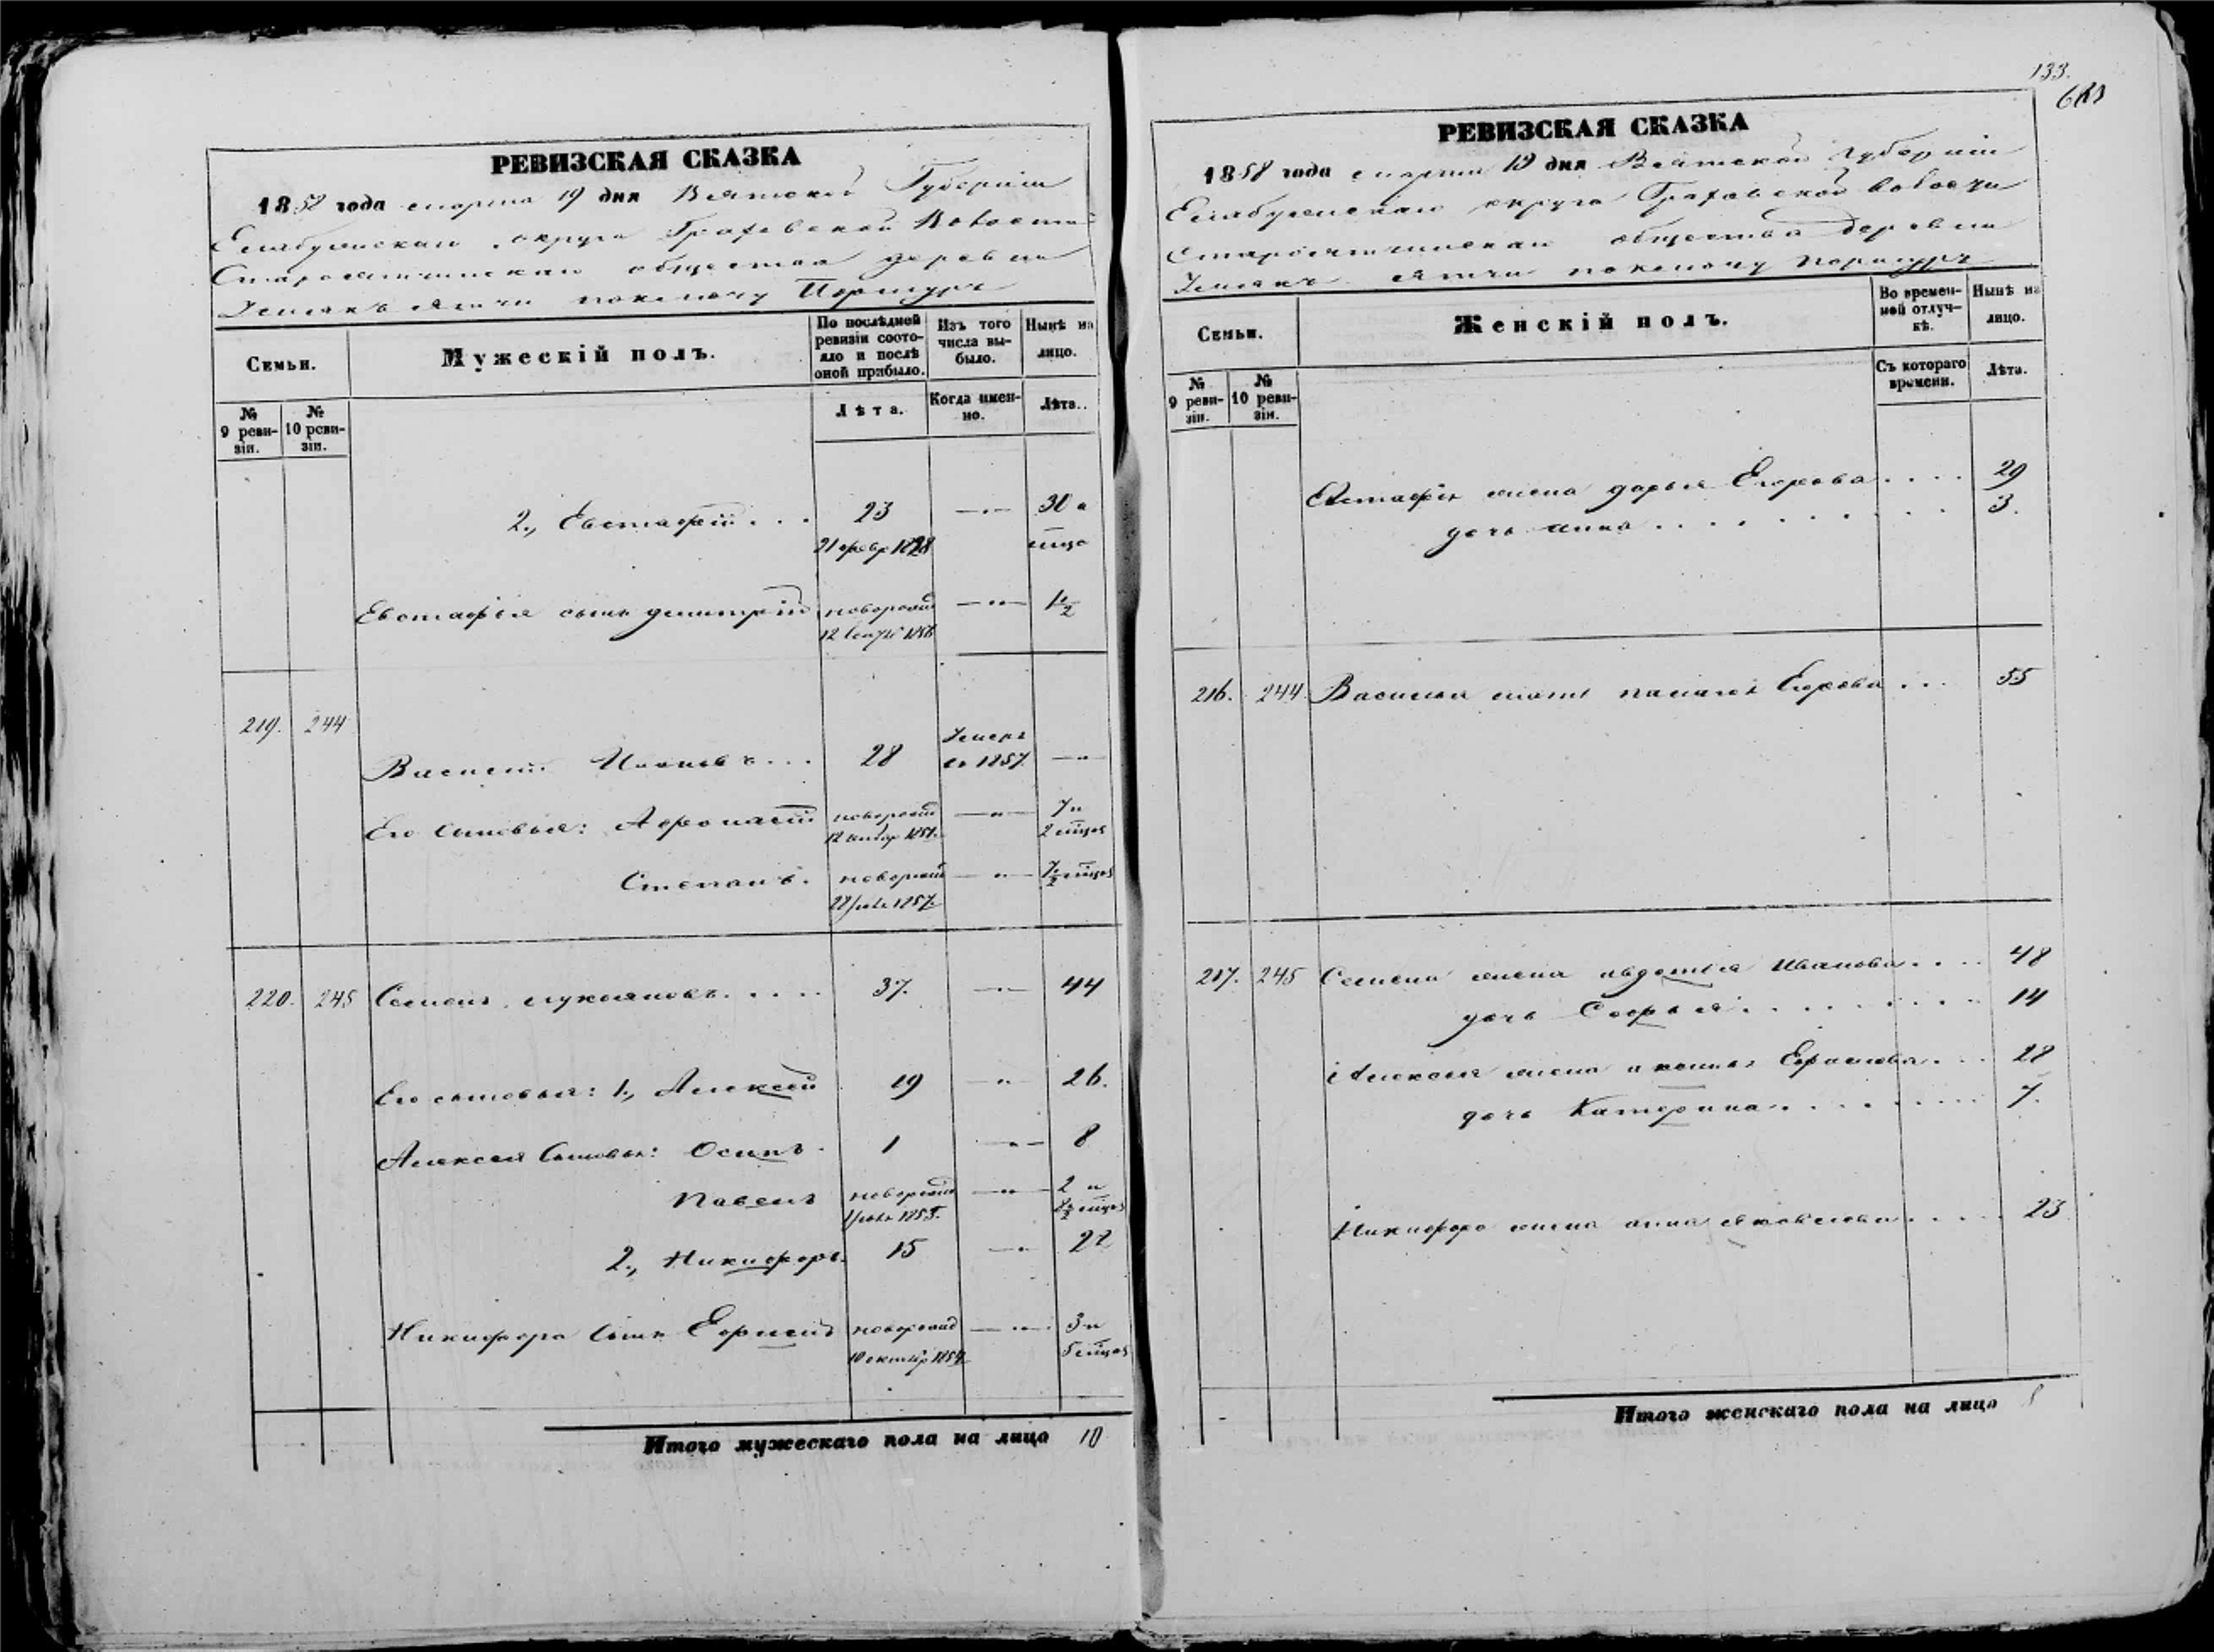 РЕВИЗСКАЯ СКАЗКА
1858 года марта 19 дня Вятской Губерніи
Елабужскаго округа Граховской Волости
Староятчинскаго общества деревни
Ятчи Поршуръ
Семьи.
Мужескій полъ.
По послѣдней ревизіи состояло и послѣ оной прибыло.
Изъ того числа выбыло.
Нынѣ на лицо.
№ 9 ревизіи.
№ 10 ревизіи.
Лѣта.
Когда именно.
Лѣта.
2., Евстафій . . . 23 — 30 и
21 февр 1828
Евстафья сынъ Дмитрій новорожд — 1½
12 1856
219. 244
Василій Ивановъ . . . 28 Умеръ въ 1857 —
Его сыновья: Афонасій новорожд — 7 и
12 2 мѣсяц
Степанъ. новорожд — 7½ мѣсяц
22 1857
220. 245 Семенъ Лукояновъ . . . . . 37. — 44
Его сыновья: 1., Алексѣй 19 — 26.
Алексѣя сыновья: Осипъ. 1 — 8
Павелъ новорожд — 2 и
1855. 8½ мѣсяц
2., Никифоръ. 15 — 22
Никифора сынъ Ефремъ новорожд — 3 и
10 октябр 1854 5 мѣсяц
Итого мужескаго пола на лицо 10
133.
РЕВИЗСКАЯ СКАЗКА
1858 года марта 19 дня Вятской Губерніи
Елабужскаго округа Граховской Волости
Староятчинскаго общества деревни
Ятчи Поршуръ
Семьи.
Женскій полъ.
Во временной отлучкѣ.
Нынѣ на лицо.
№ 9 ревизіи.
№ 10 ревизіи.
Съ котораго времени.
Лѣта.
Евстафія жена Дарья Егорова . . . . 29
дочь Анна . . . . . . . . . 3.
216. 244. Василья мать Егорова . . . 55
217. 245 Семена жена Авдотья Иванова . . . . 48
дочь Софья . . . . . . . . 14
Алексѣя жена Ефремова . . . 28
дочь Катерина . . . . . . . . 7.
Никифора жена Анна Яковлева . . . . . 23
Итого женскаго пола на лицо 8